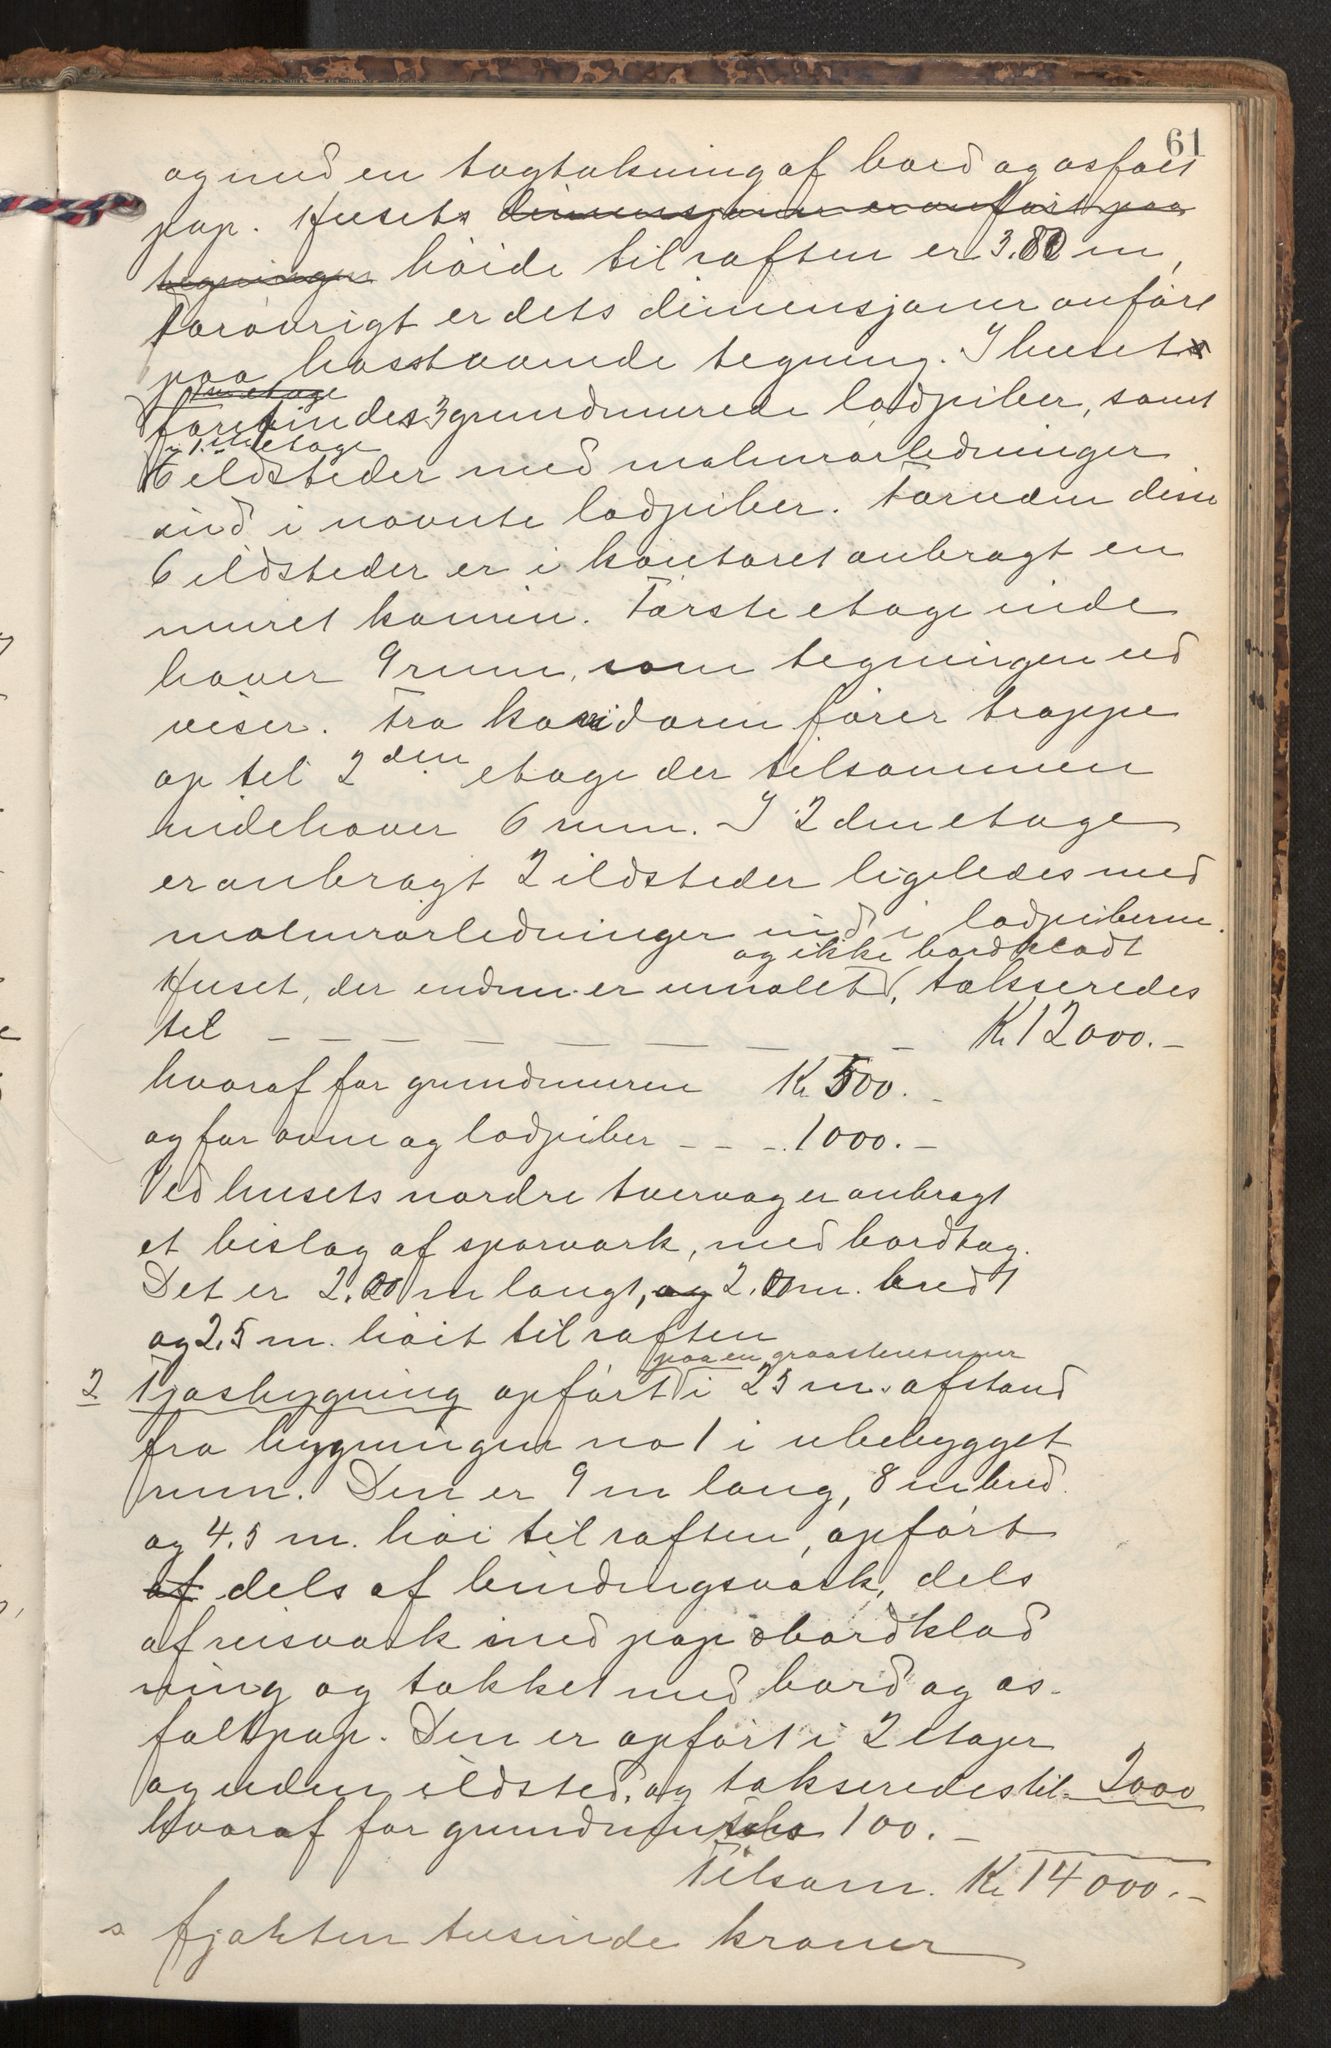 61
og med en tagtækning af bord og asfalt
pap. Husets dimensjoner er anført paa
tegningen høide til raften er 3.80 m,
Forøvrigt er dets dimensjoner anført
paa hosstaaende tegning. I huset
1ste etage
forefindes 3 grundmurede lodpiber, samt
i 1ste etage
6 ildsteder med malmrørledninger
ind i nævnte lodpiber. Foruden disse
6 ildsteder er i kontoret anbragt en
muret kamin. Første etage inde
haver 9 rum, som tegningen ud
viser. Fra koridoren fører trappe
op til 2den etage der tilsammen
indehaver 6 rum. I 2den etage
er anbragt 2 ildsteder ligeledes med
malmrørledninger ind i lodpiberne.
og ikke bordklædt
Huset, der endnu er umalet, takseredes
til – – – – – – – – – Kr 12000.–
hvoraf for grundmuren Kr 500.–
og for ovne og lodpiber – – – 1000.–
Ved husets nordre tvervæg er anbragt
et bislag af sparværk, med bordtag.
Det er 2.00 m langt, og 2.00 m. bredt
og 2.5 m. høit til raften
paa en graastensmur
2 Fjøsbygning opført i 25 m. afstand
fra bygningen no 1 i ubebygget
rum. Den er 9 m lang, 8 m bred
og 4.5 m. høi til raften, opført
af dels af bindingsværk, dels
af reisværk med pap & bordklæd
ning og tækket med bord og as-
faltpap. Den er opført i 2 etager
og uden ildsted, og takseredes til 2000
hvoraf for grundmuren 100.–
Tilsam. Kr 14000.–
fjorten tusinde kroner